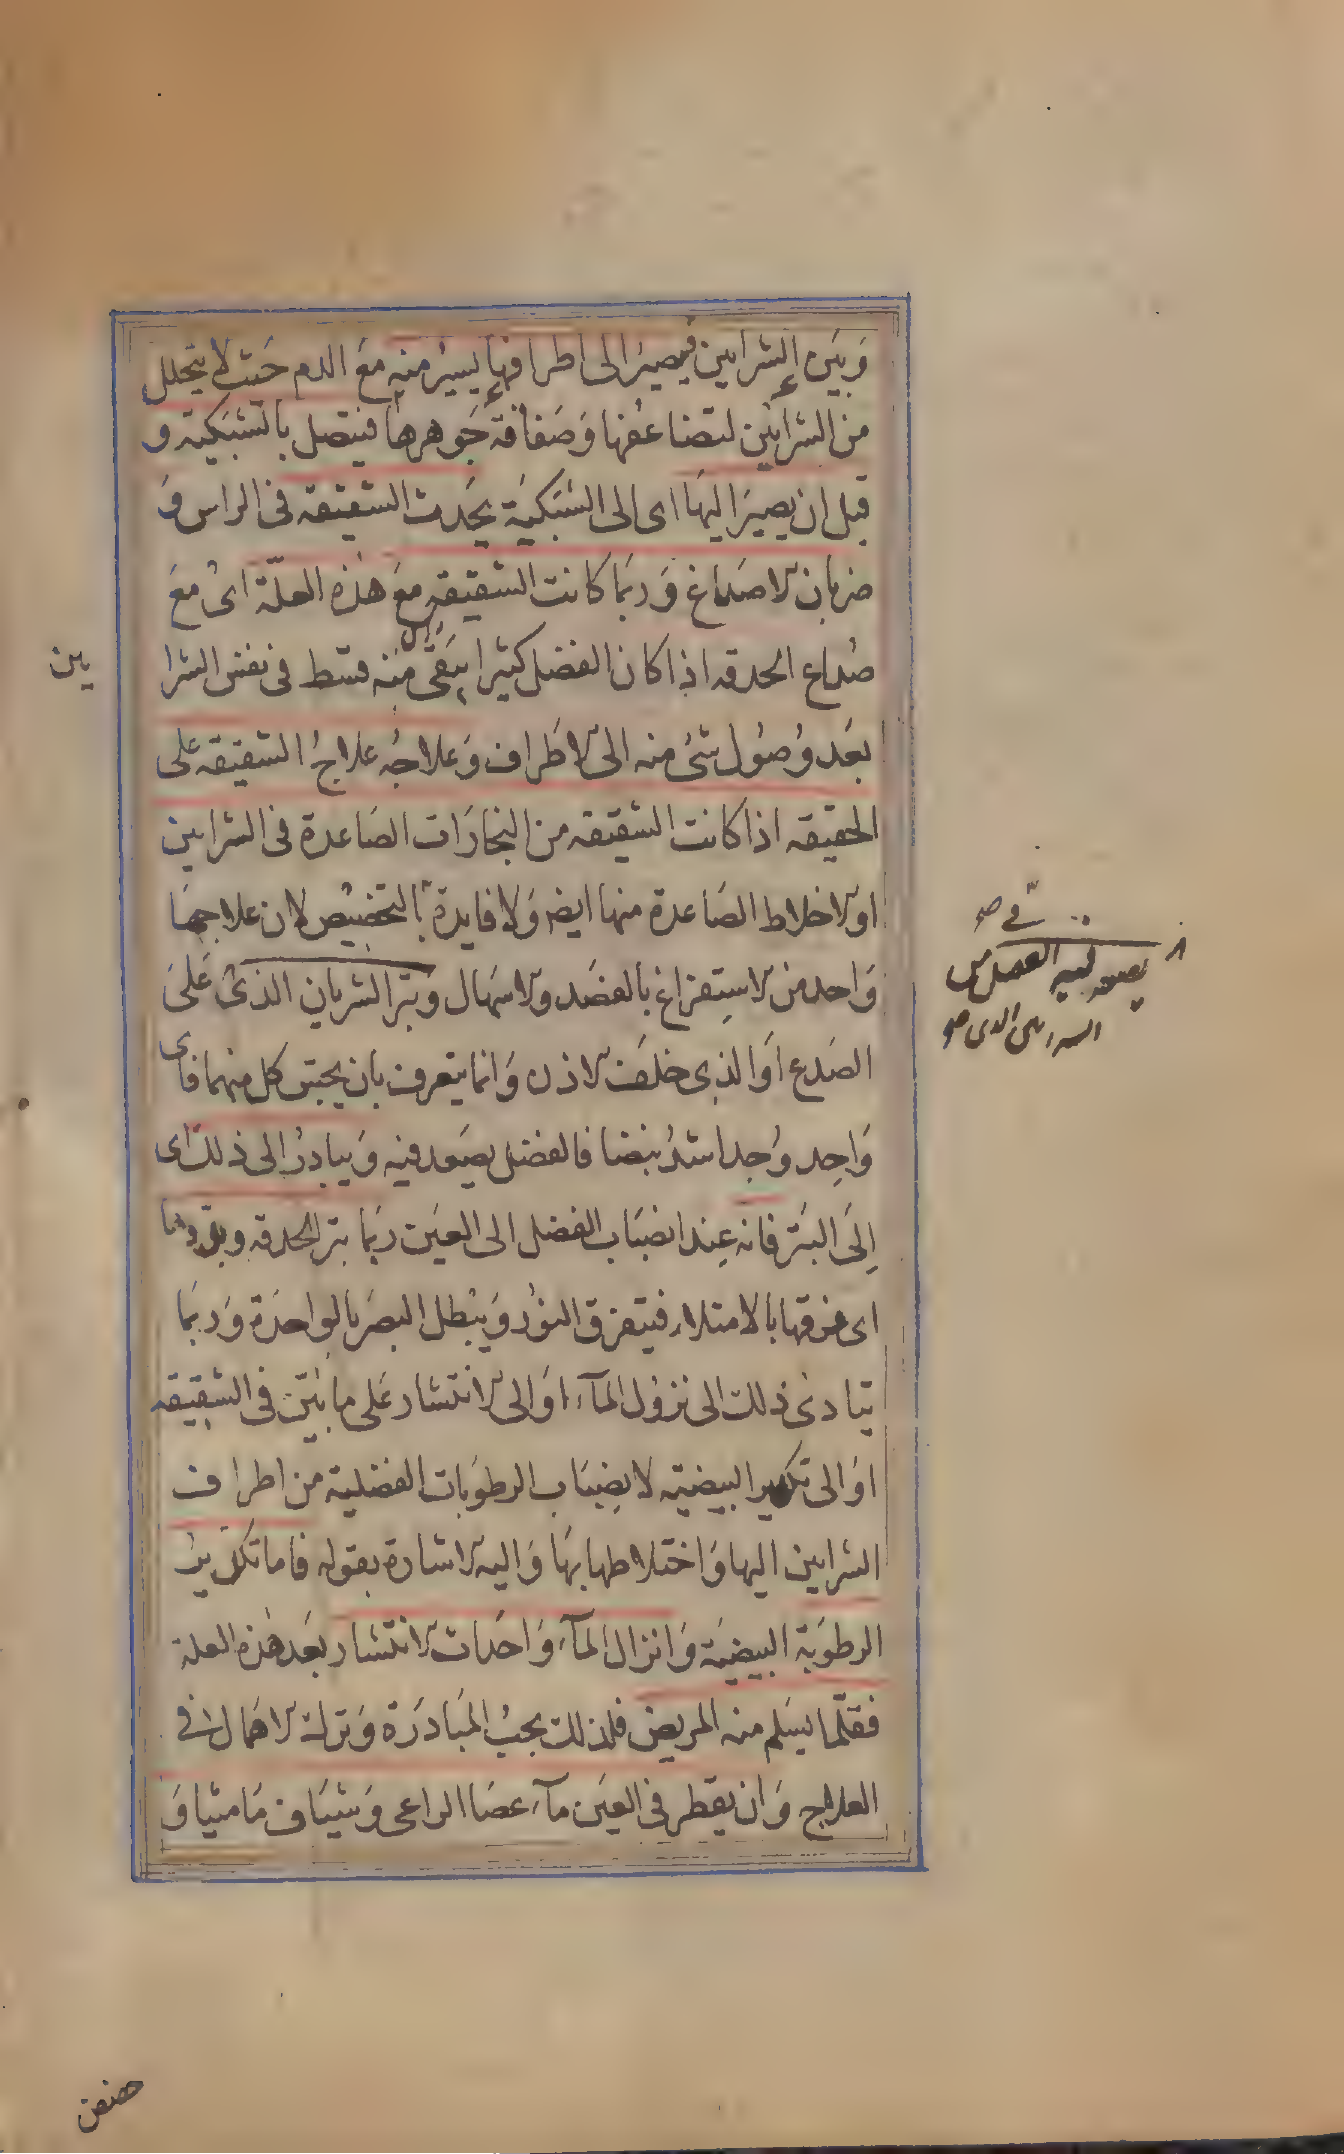 وبين الشرايين فيصير الى اطرافها يسير منه مع الدم حيث لا يتحلل
من الشرايين لتضاعفها وصفاقة جوهرها فيتصل بالشبكية و
قبل ان يصير اليها اى الى الشبكية يحدث الشقيقه فى الراس و
ضربان الاصداغ وربما كانت الشقيقه مع هذه العلة اى مع
صداع الحدقه اذا كان الفضل كثيرا يبقى منه قسط فى نفس الشرا
يين
بعد وصول شئ منه الى الاطراف وعلاجه علاج الشقيقه على
الحقيقه اذا كانت الشقيقه من البخارات الصاعدة فى الشرايين
او الاخلاط الصاعدة منها ايضا ولا فايدة بالتخصيص لان علاجهما
واحد من الاستفراغ بالفصد والاسهال وبتر الشريان الذى على
الصدغ او الذى خلف الاذن وانما يتعرف بان يحبس كل منهما فاى
واحد وجد اشد نبضا فالفضل يصعد فيه ويبادر الى ذلك اى
الى البتر فانه عند انصباب الفضل الى العين ربما بتر الحدقه
اى فرقها بالامتلاء فيتفرق النور ويبطل البصر بالواحدة وربما
يتادى ذلك الى نزول المآء او الى الانتشار على ما بين فى الشقيقه
او الى تكدير البيضيه لانصباب الرطوبات الفضلية من اطراف
الشرايين اليها واختلاطها بها واليه الاشارة بقوله فاما تكدير
الرطوبة البيضية وانزال المآء واحداث الانتشار بعد هذه العلة
فقلما يسلم منه المريض فلذلك يجب المبادرة وترك الاهمال فى
العلاج وان يقطر فى العين مآء عصا الراعى وشياف ماميثا و